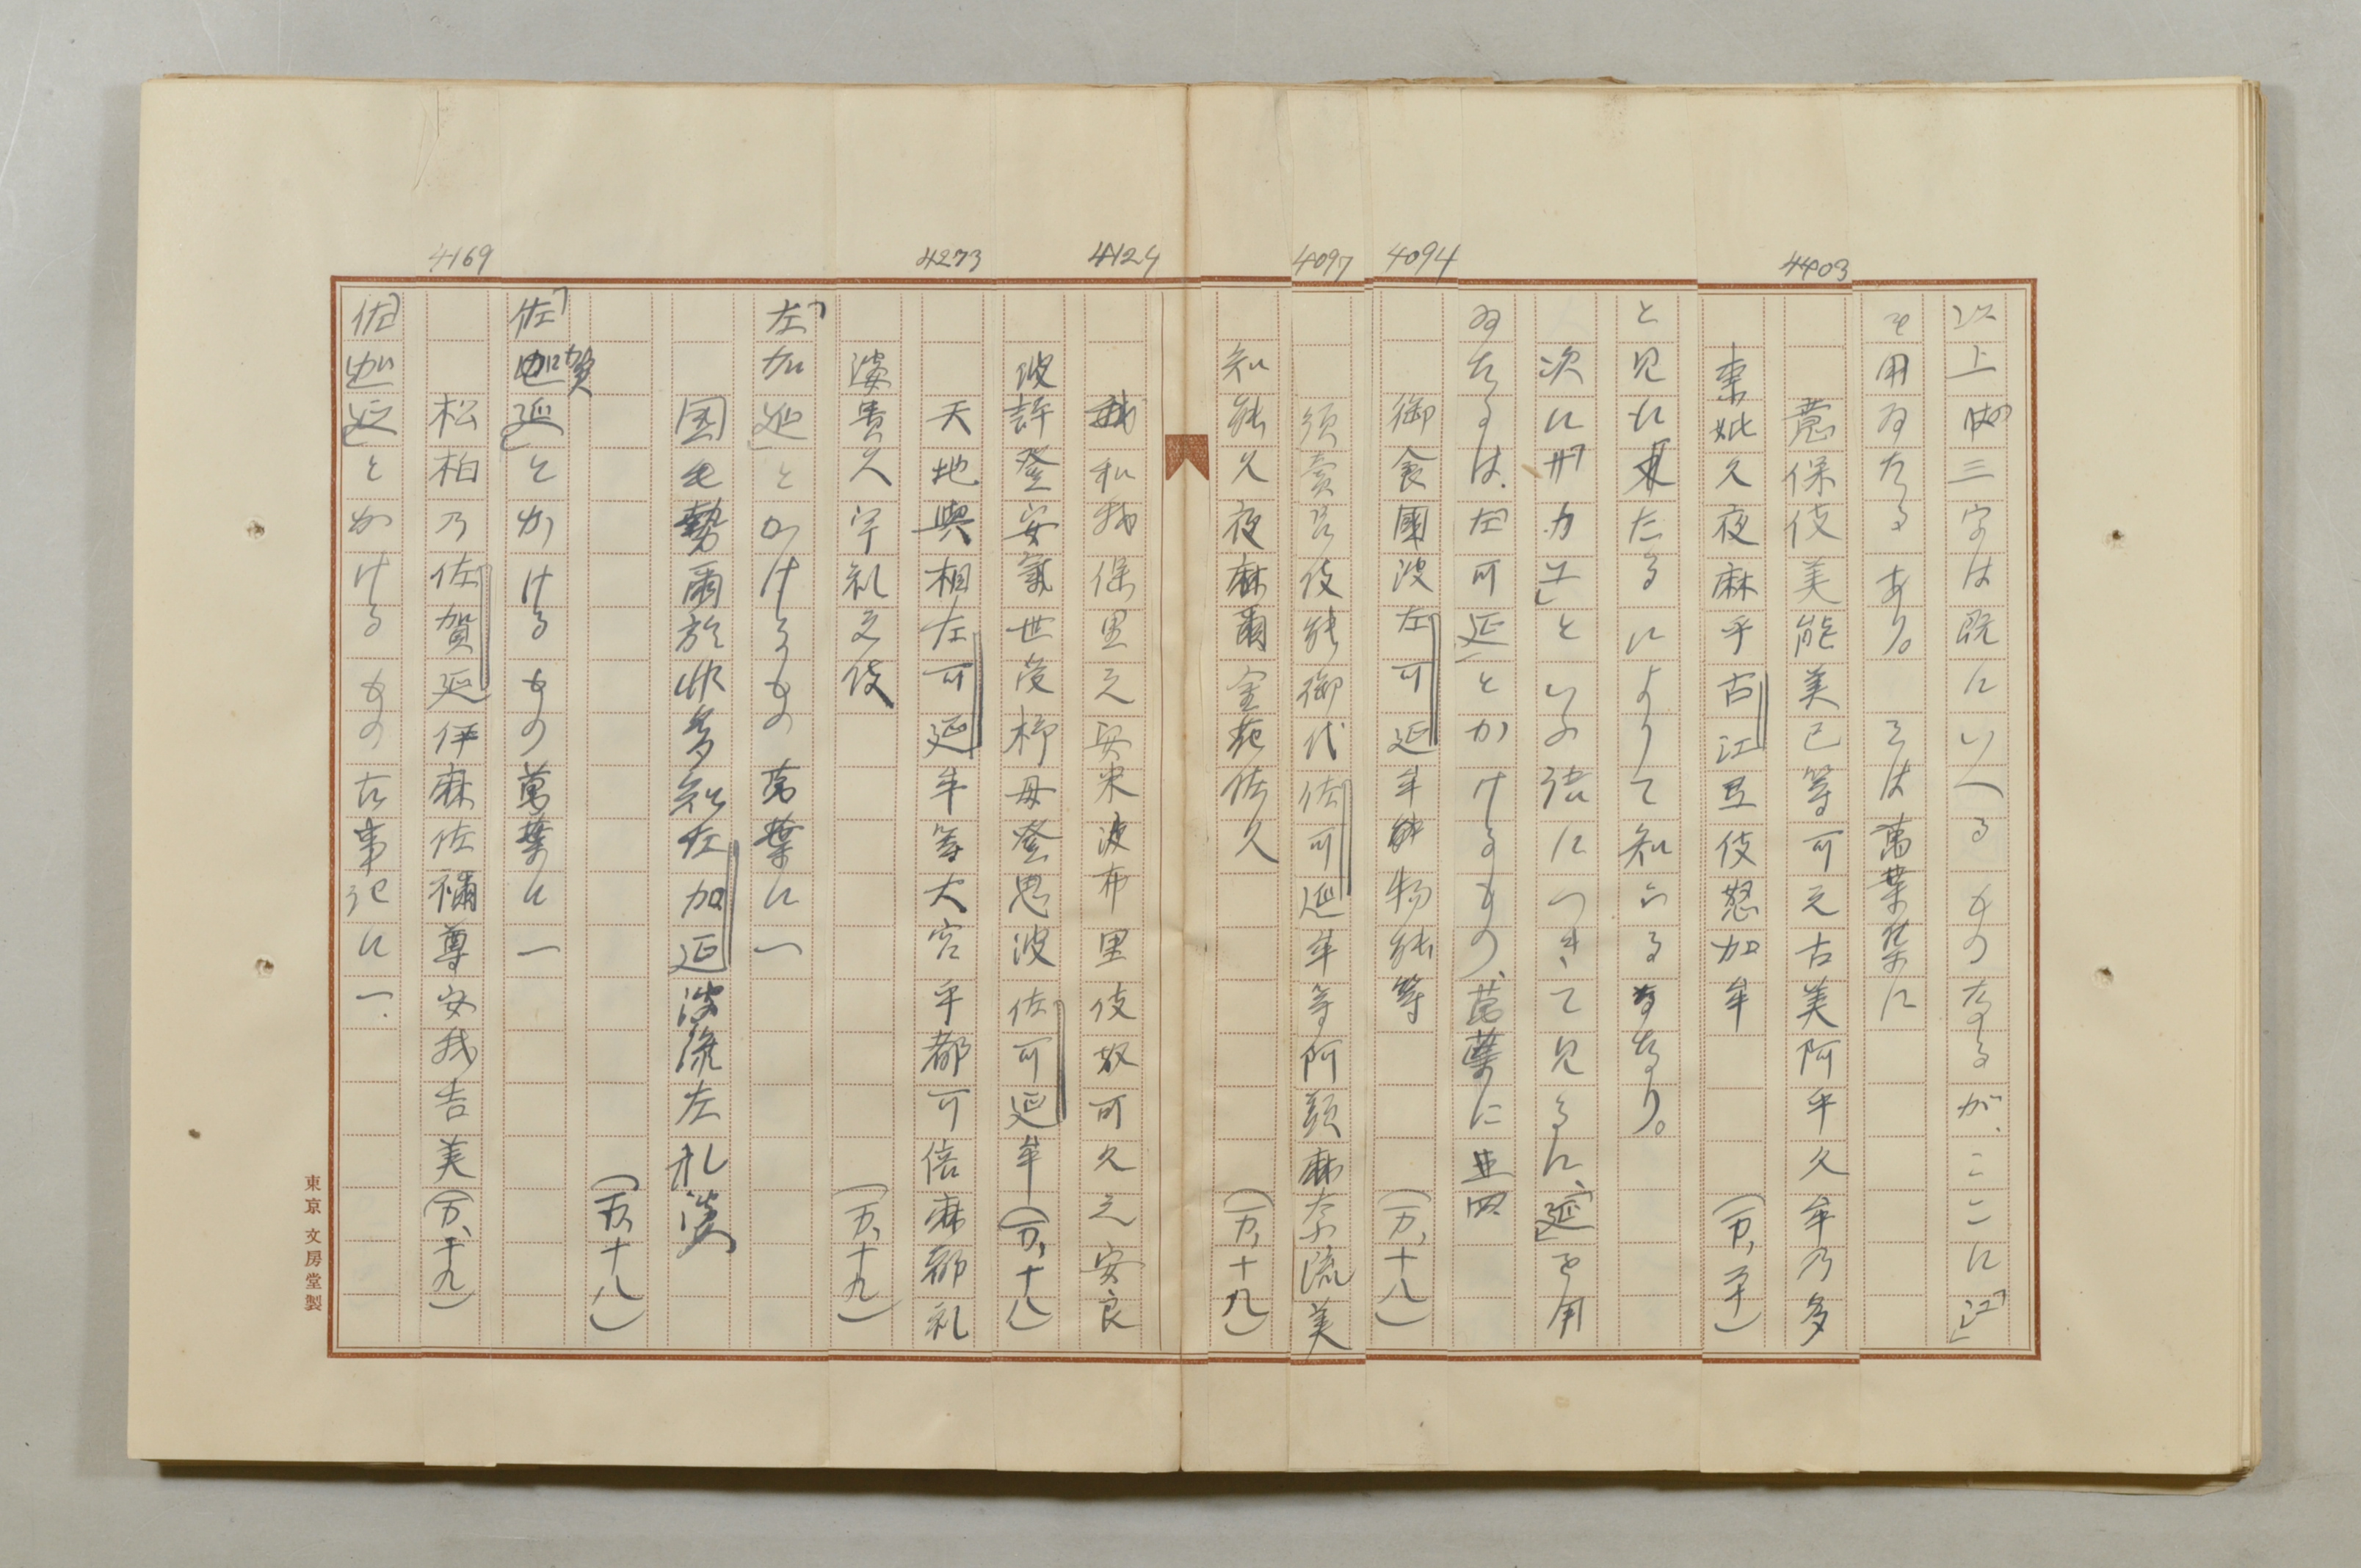 4403
4094
4097
4124
4273
4169
以上の三字は既にいへるものなるが、ここに「江」
を用ゐたるあり。それは萬葉集に
意保伎美能美己等可之古美阿乎久牟乃多
奈妣久夜麻乎古江弖伎怒加牟
(万、二十)
と見え来たるによりて知らるるなり。
次に「サカエ」といふ語につきて見るに、「延」を用
ゐたるは、「左可延」とかけるもの、萬葉に出四
御食國波左可延牟物能等
(万、十八)
須賣呂伎能御代佐可延牟等阿頭麻奈流美
知能久夜麻爾金花佐久
(万、十八)
我和我保里之安米波布里伎奴可久之安良
波許登安氣世受杼母登思波佐可延牟(万、十八)
天地與相左可延牟等大宮乎都可倍麻都礼
婆貴久宇礼之伎
(万、十九)
「左加延」とかけるもの萬葉に一
国毛勢爾於非多知左加延波流左礼婆
(万、十八)
「佐賀延」とかけるもの萬葉に一
松柏乃佐賀延伊麻佐祢尊安我吉美(万、十九)
「佐加延」とかけるもの古事記に一、
東京 文房堂製